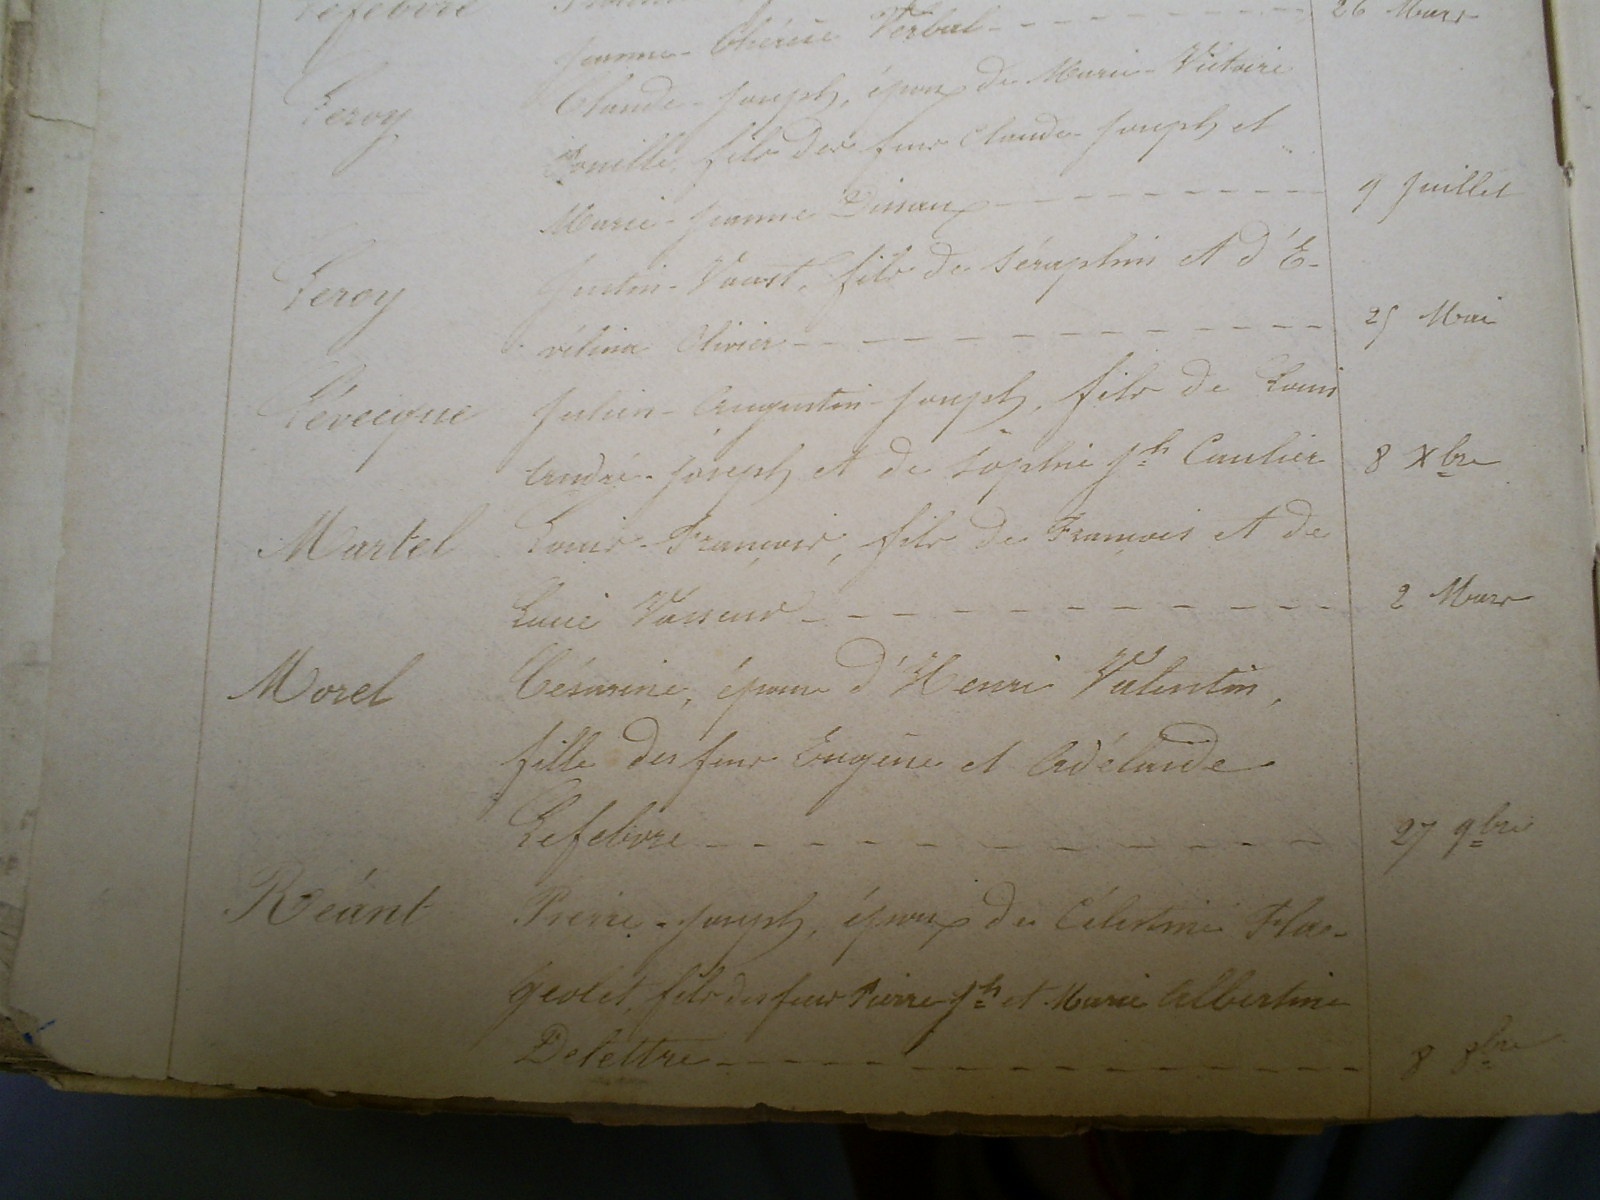 Lefebvre
Jeanne-Thérèse Verbal - - - - - - - - 26 Mars
Leroy Claude-Joseph, époux de Marie-Victoire
fils des feus Claude-Joseph et
Marie-Jeanne - - - - - - - - - 9 Juillet
Leroy Justin-Vaast, fils de Séraphin et d'É-
vélina Olivier - - - - - - - - - - - 25 Mai
Lévecque Julien-Augustin-Joseph, fils de Louis
André-Joseph et de Sophie Jh Caulier 8 Xbre
Martel Louis-François, fils de François et de
Lucie Vasseur - - - - - - - - - - - 2 Mars
Morel Césarine, épouse d'Henri Valentin,
fille des feus Eugène et Adélaïde
Lefebvre - - - - - - - - - - - - 27 9bre
Réant Pierre-Joseph, époux de Célestine Fla-
geolet, fils des feus Pierre Jh et Marie Albertine
Delettre - - - - - - - - - - - - - 8 8bre